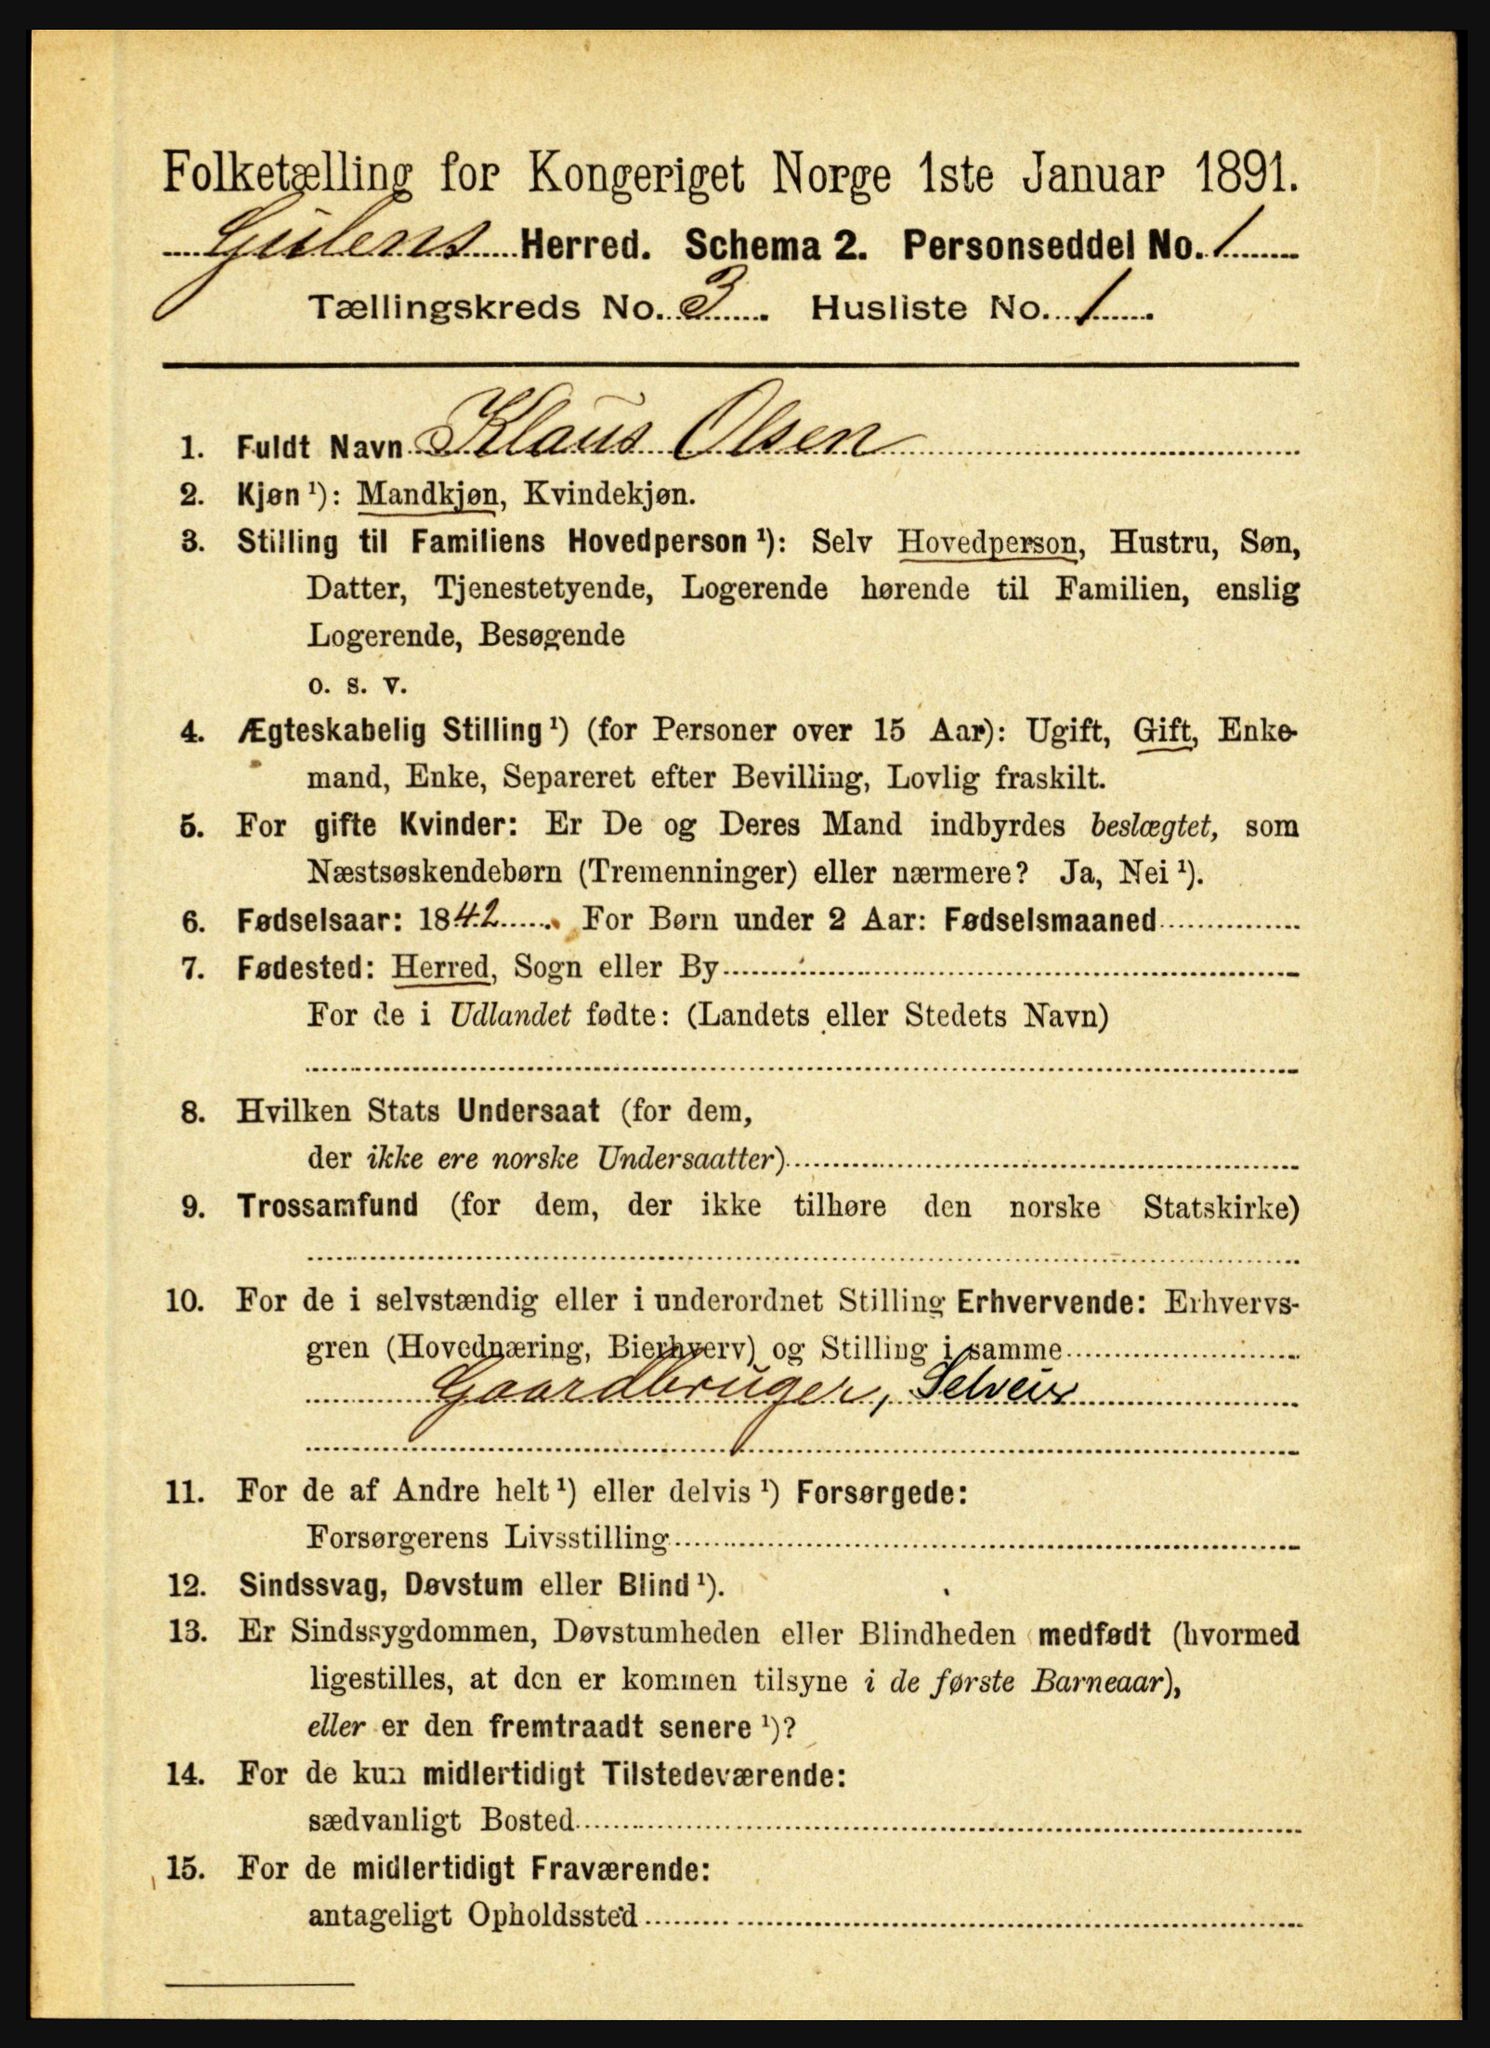 Folketælling for Kongeriget Norge 1ste Januar 1891.
Gulens Herred. Schema 2. Personseddel No. 1
Tællingskreds No. 3. Husliste No. 1.
1. Fuldt Navn Klaus Olsen
2. Kjøn ¹): Mandkjøn, Kvindekjøn.
3. Stilling til Familiens Hovedperson ¹): Selv Hovedperson, Hustru, Søn,
Datter, Tjenestetyende, Logerende hørende til Familien, enslig
Logerende, Besøgende
o. s. v.
4. Ægteskabelig Stilling ¹) (for Personer over 15 Aar): Ugift, Gift, Enke-
mand, Enke, Separeret efter Bevilling, Lovlig fraskilt.
5. For gifte Kvinder: Er De og Deres Mand indbyrdes beslægtet, som
Næstsøskendebørn (Tremenninger) eller nærmere? Ja, Nei ¹).
6. Fødselsaar: 1842. For Børn under 2 Aar: Fødselsmaaned
7. Fødested: Herred, Sogn eller By
For de i Udlandet fødte: (Landets eller Stedets Navn)
8. Hvilken Stats Undersaat (for dem,
der ikke ere norske Undersaatter)
9. Trossamfund (for dem, der ikke tilhøre den norske Statskirke)
10. For de i selvstændig eller i underordnet Stilling Erhvervende: Erhvervs-
gren (Hovednæring, Bierhverv) og Stilling i samme
Gaardbruger, Selveier
11. For de af Andre helt ¹) eller delvis ¹) Forsørgede:
Forsørgerens Livsstilling
12. Sindssvag, Døvstum eller Blind ¹).
13. Er Sindssygdommen, Døvstumheden eller Blindheden medfødt (hvormed
ligestilles, at den er kommen tilsyne i de første Barneaar),
eller er den fremtraadt senere ¹)?
14. For de kun midlertidigt Tilstedeværende:
sædvanligt Bosted
15. For de midlertidigt Fraværende:
antageligt Opholdssted